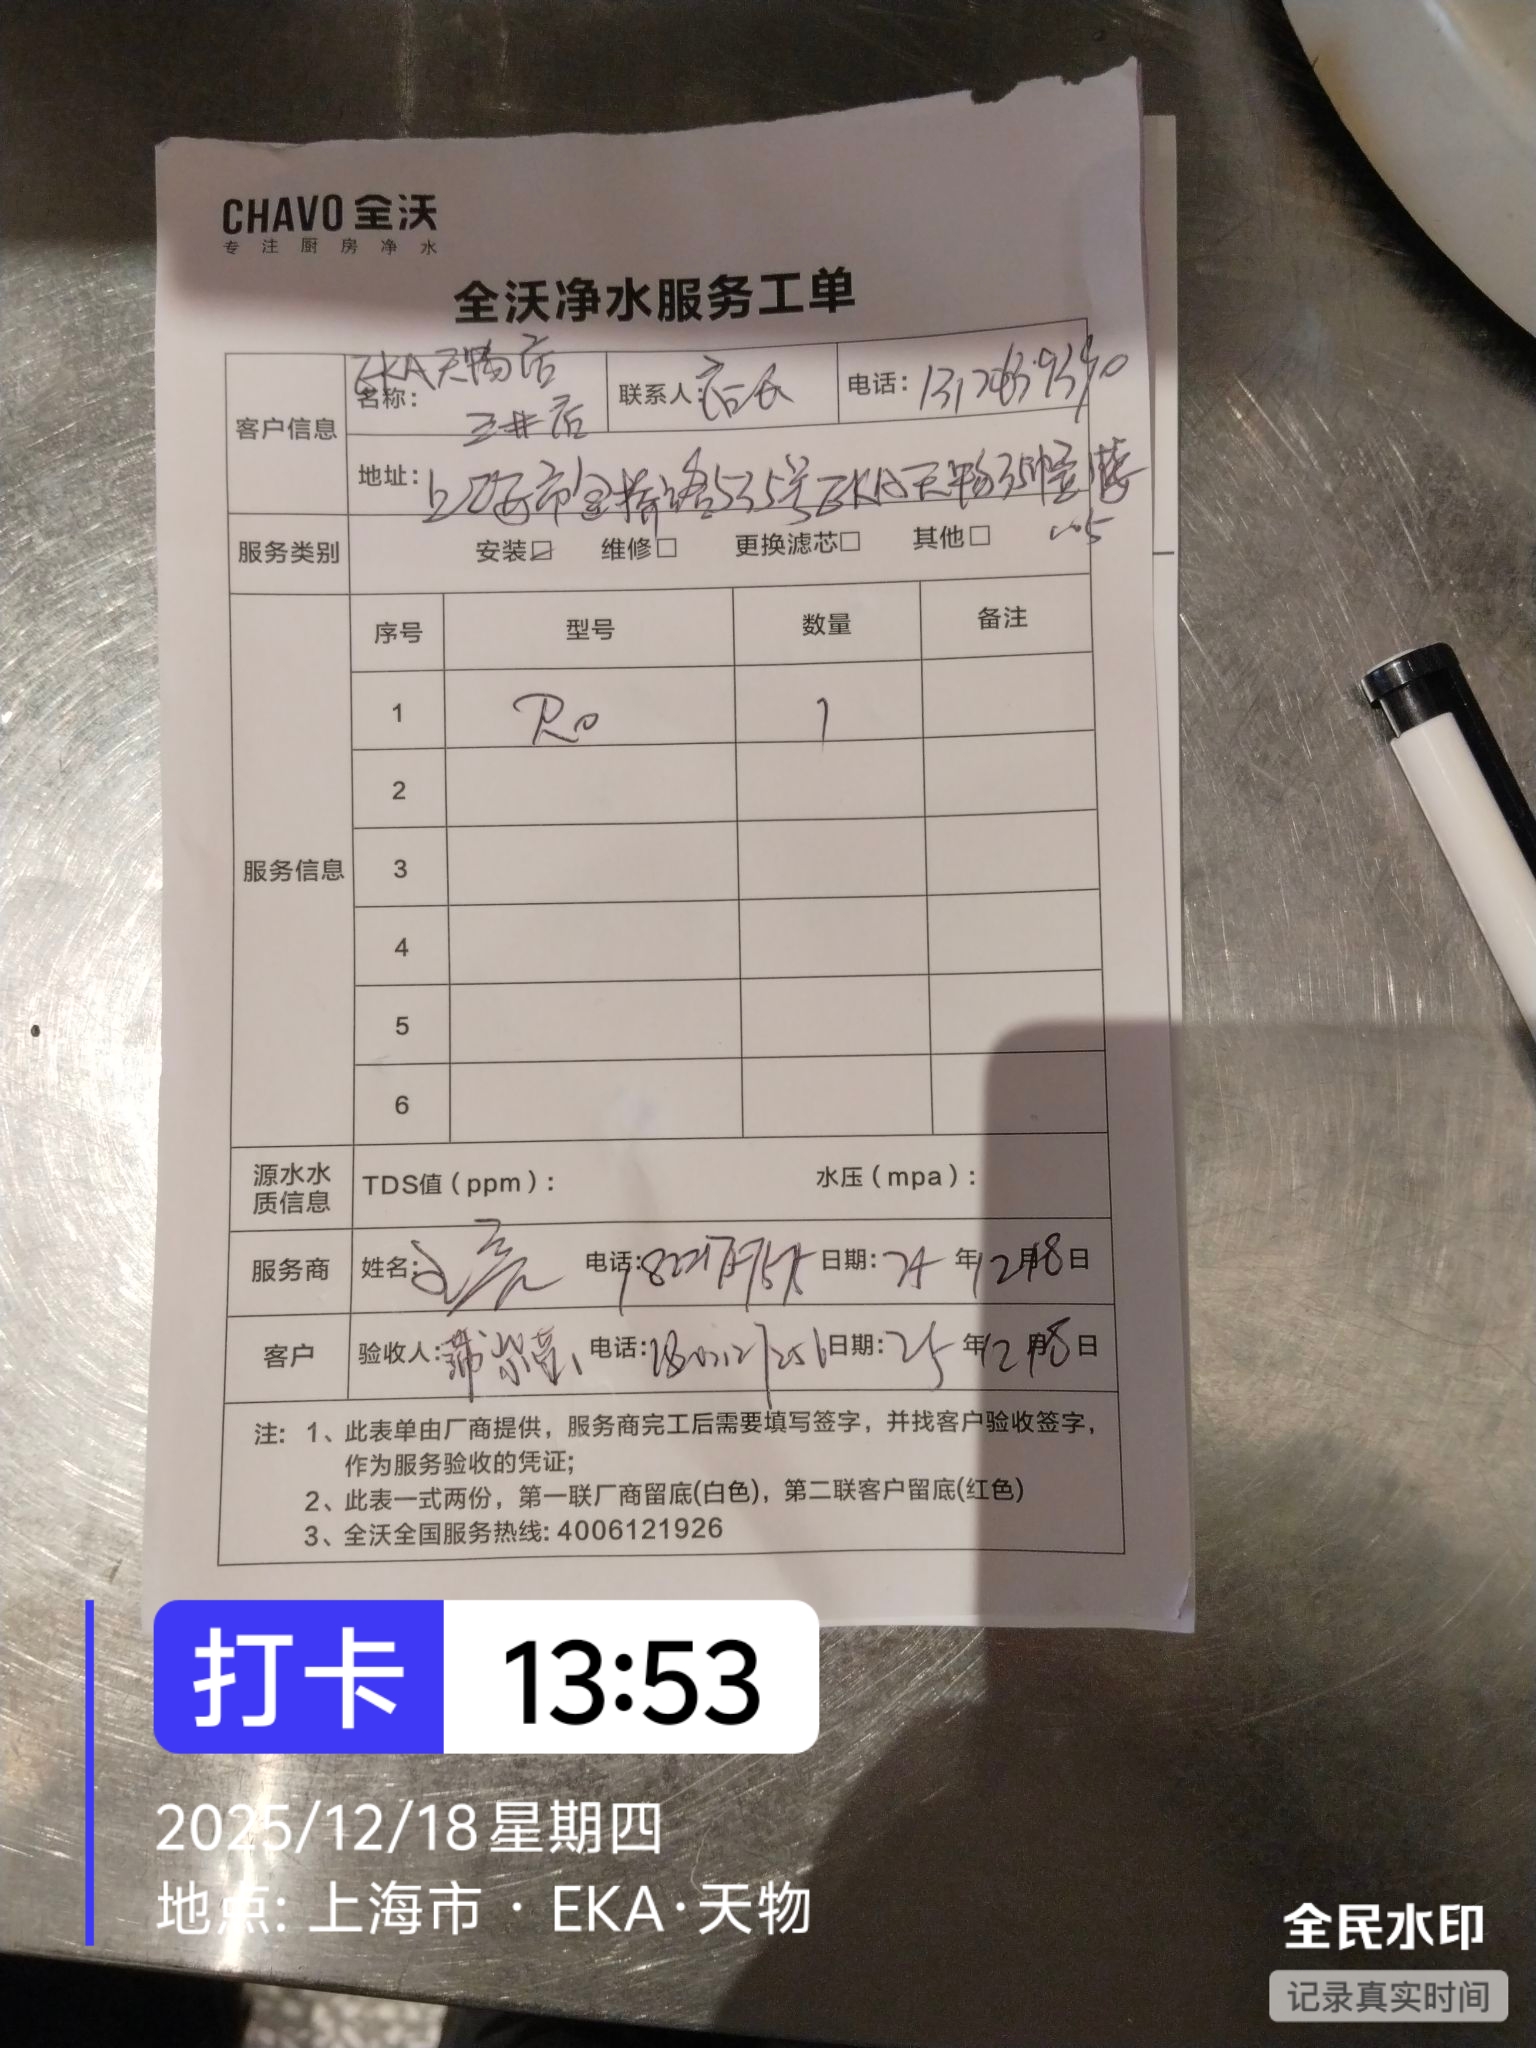 CHAVO 全沃
专注厨房净水
全沃净水服务工单
客户信息
名称: EKA天物店
联系人: 店长
电话:
地址: 上海市金桥路535号EKA天物35幢1楼
105
服务类别 安装☑ 维修□ 更换滤芯□ 其他□
服务信息
序号 型号 数量 备注
1 Ro 1
2
3
4
5
6
源水水质信息 TDS值(ppm): 水压(mpa):
服务商 姓名: 电话: 日期: 25 年 12 月 18 日
客户 验收人: 电话: 日期: 25 年 12 月 18 日
注: 1、此表单由厂商提供,服务商完工后需要填写签字,并找客户验收签字,
作为服务验收的凭证;
2、此表一式两份,第一联厂商留底(白色),第二联客户留底(红色)
3、全沃全国服务热线: 4006121926
打卡 13:53
2025/12/18 星期四
地点: 上海市·EKA·天物
全民水印
记录真实时间